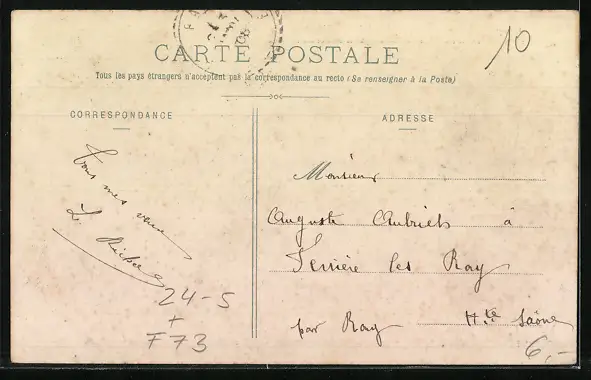 10
CARTE POSTALE
Tous les pays étrangers n'acceptent pas la correspondance au recto (Se renseigner à la Poste)
CORRESPONDANCE
ADRESSE
Tous mes vœux
L.
24-5
+
F73
Monsieur
Auguste à
Ferrière les Ray
par Ray Hte Saône
6,-